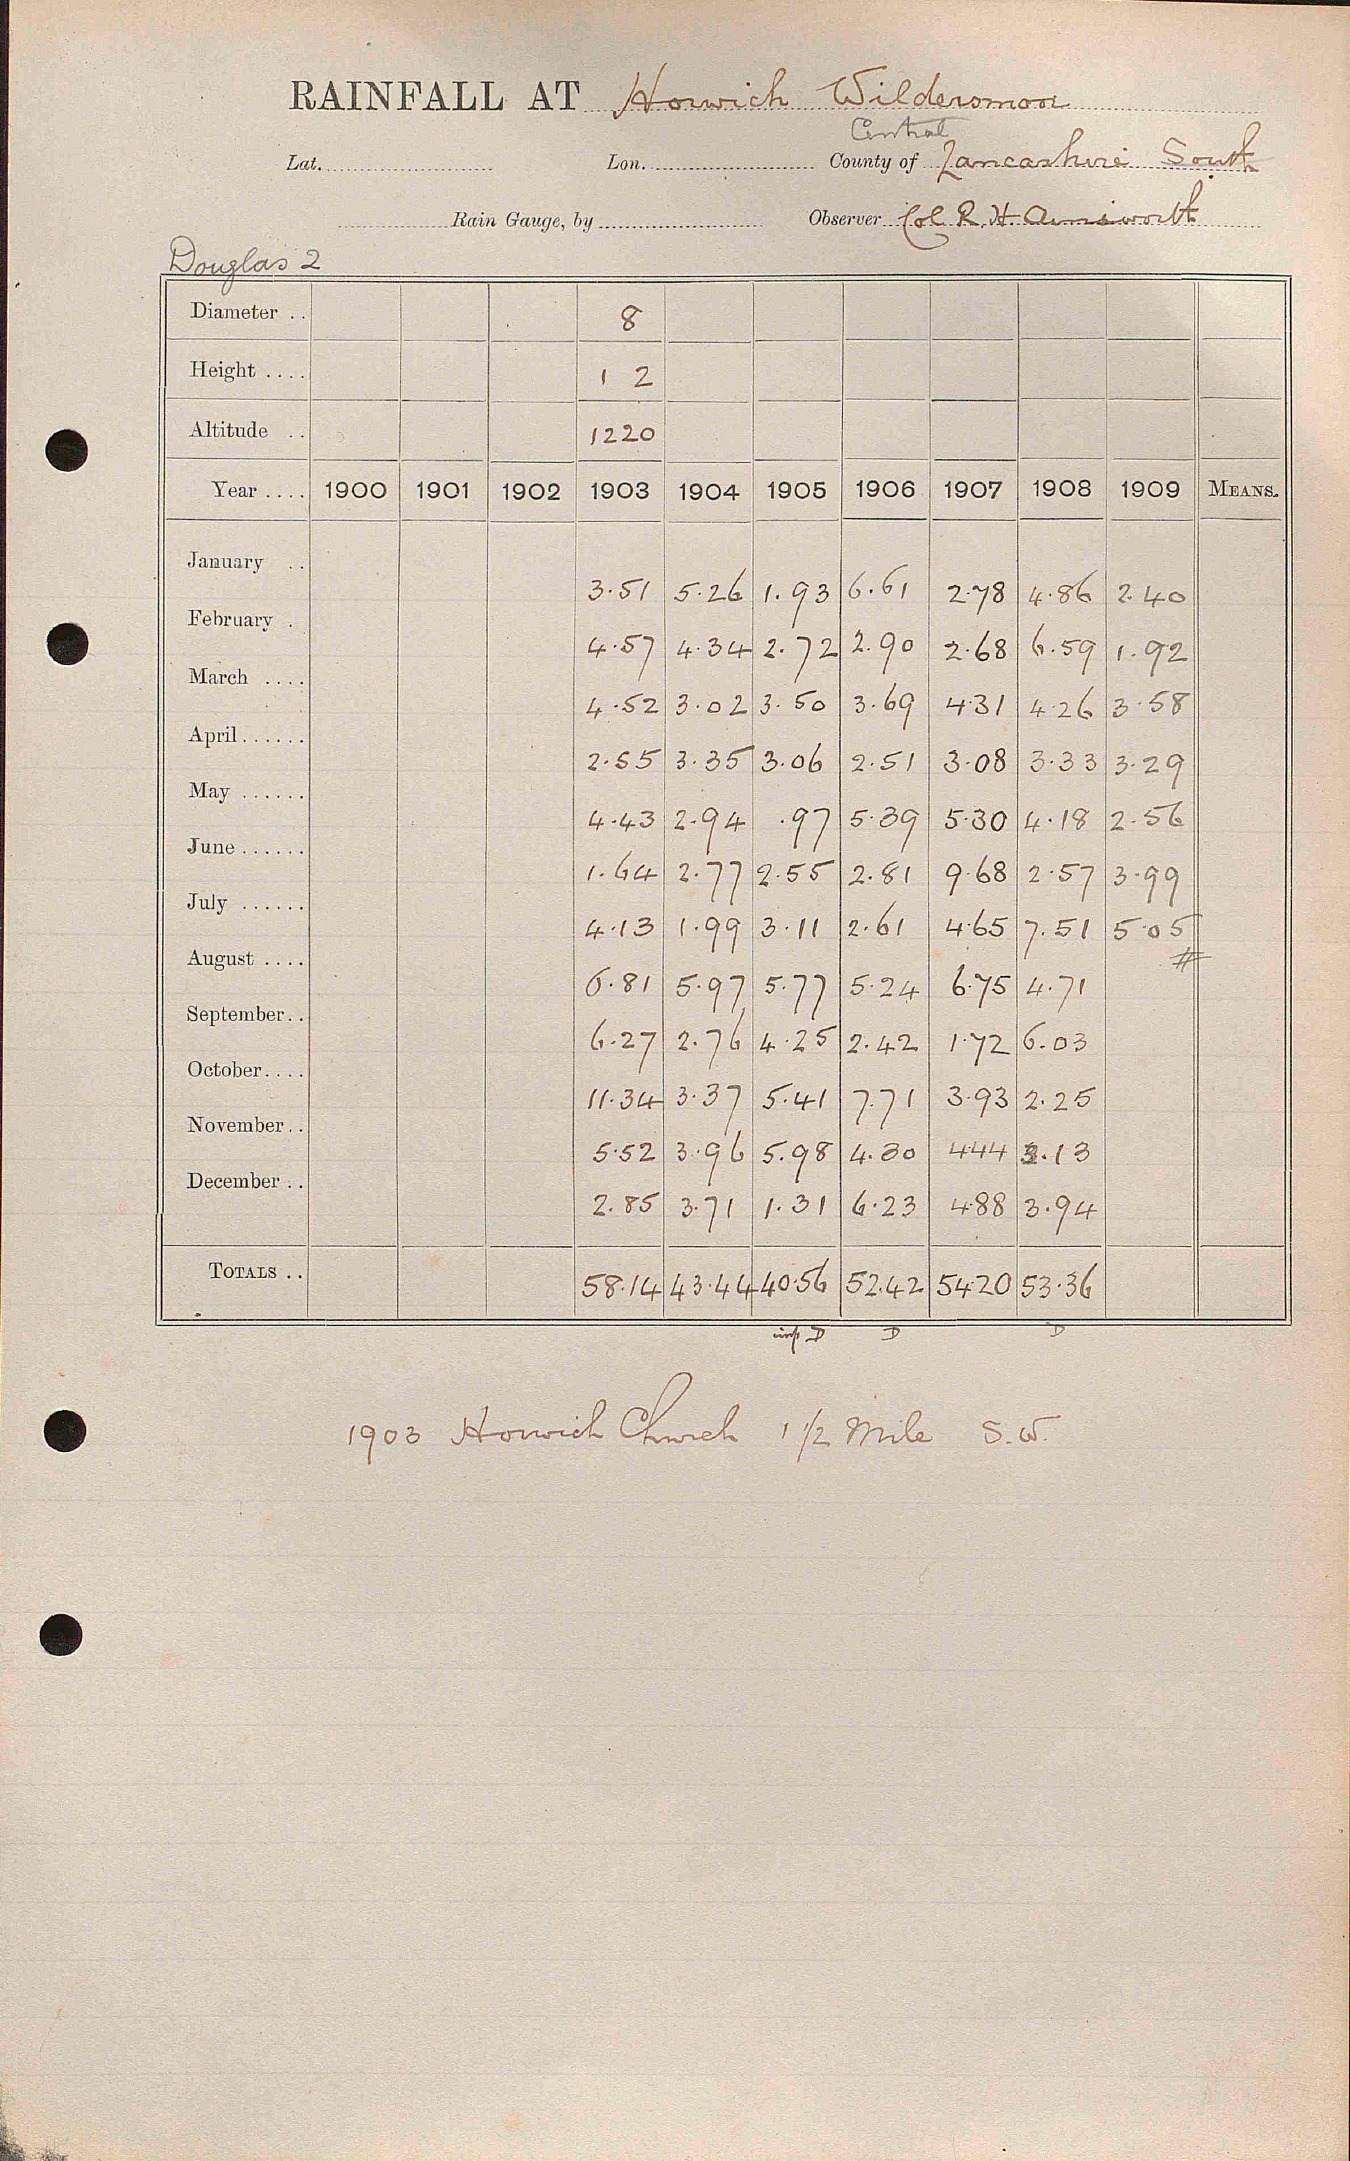 RAINFALL AT Horwich Wildersmoor
Central
Lat. Lon. County of Lancashire South
Rain Gauge, by Observer Col R. H. Ainsworth
Douglas 2
Diameter .. 8
Height .... 1 2
Altitude .. 1220
Year .... 1900 1901 1902 1903 1904 1905 1906 1907 1908 1909 MEANS.
January .. 3.51 5.26 1.93 6.61 2.78 4.86 2.40
February . 4.57 4.34 2.72 2.90 2.68 6.59 1.92
March .... 4.52 3.02 3.50 3.69 4.31 4.26 3.58
April...... 2.55 3.35 3.06 2.51 3.08 3.33 3.29
May ...... 4.43 2.94 .97 5.39 5.30 4.18 2.56
June...... 1.64 2.77 2.55 2.81 9.68 2.57 3.99
July ...... 4.13 1.99 3.11 2.61 4.65 7.51 5.05
#
August .... 6.81 5.97 5.77 5.24 6.75 4.71
September.. 6.27 2.76 4.25 2.42 1.72 6.03
October.... 11.34 3.37 5.41 7.71 3.93 2.25
November.. 5.52 3.96 5.98 4.30 4.44 3.13
December .. 2.85 3.71 1.31 6.23 4.88 3.94
TOTALS .. 58.14 43.44 40.56 52.42 54.20 53.36
D D D
1903 Horwich Church 1 1/2 Mile S.W.